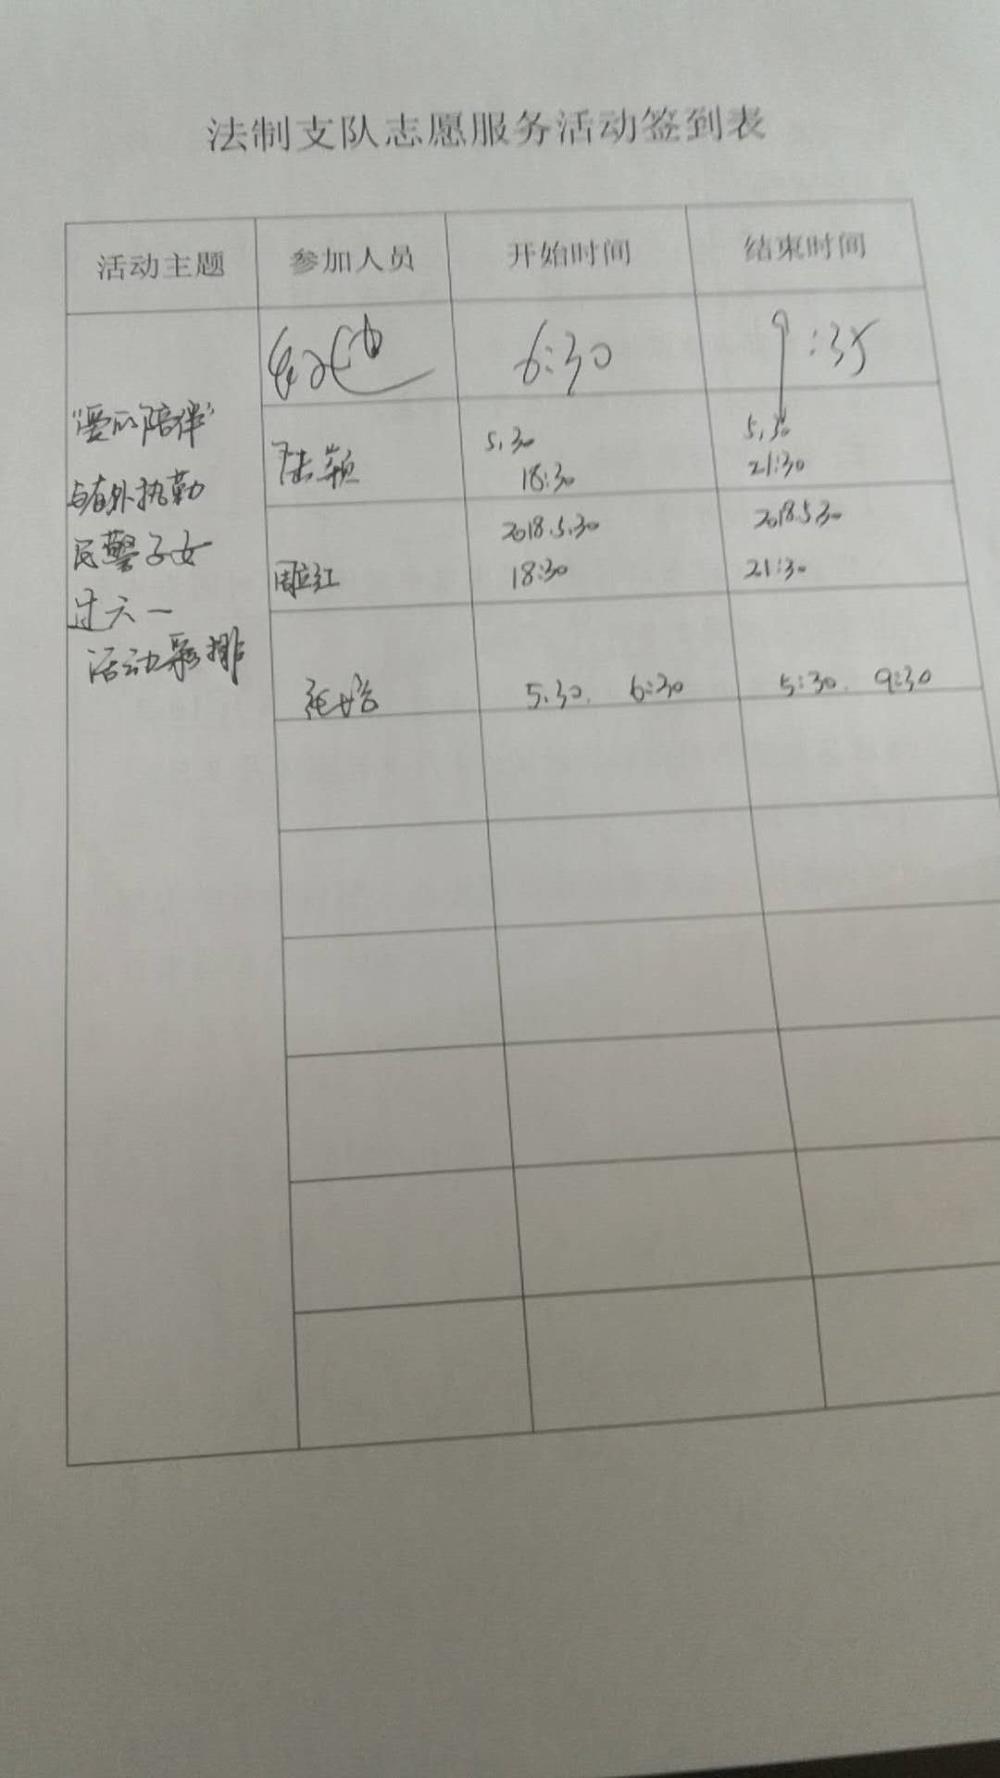 法制支队志愿服务活动签到表
活动主题 参加人员 开始时间 结束时间
"爱的陪伴"
与在外执勤
民警子女
过六一
活动彩排
6:30 9:35
陆颖 5.30 18:30 5.30 21:30
周立红 2018.5.30 18:30 2018.5.30 21:30
5.30. 6:30 5:30. 9:30